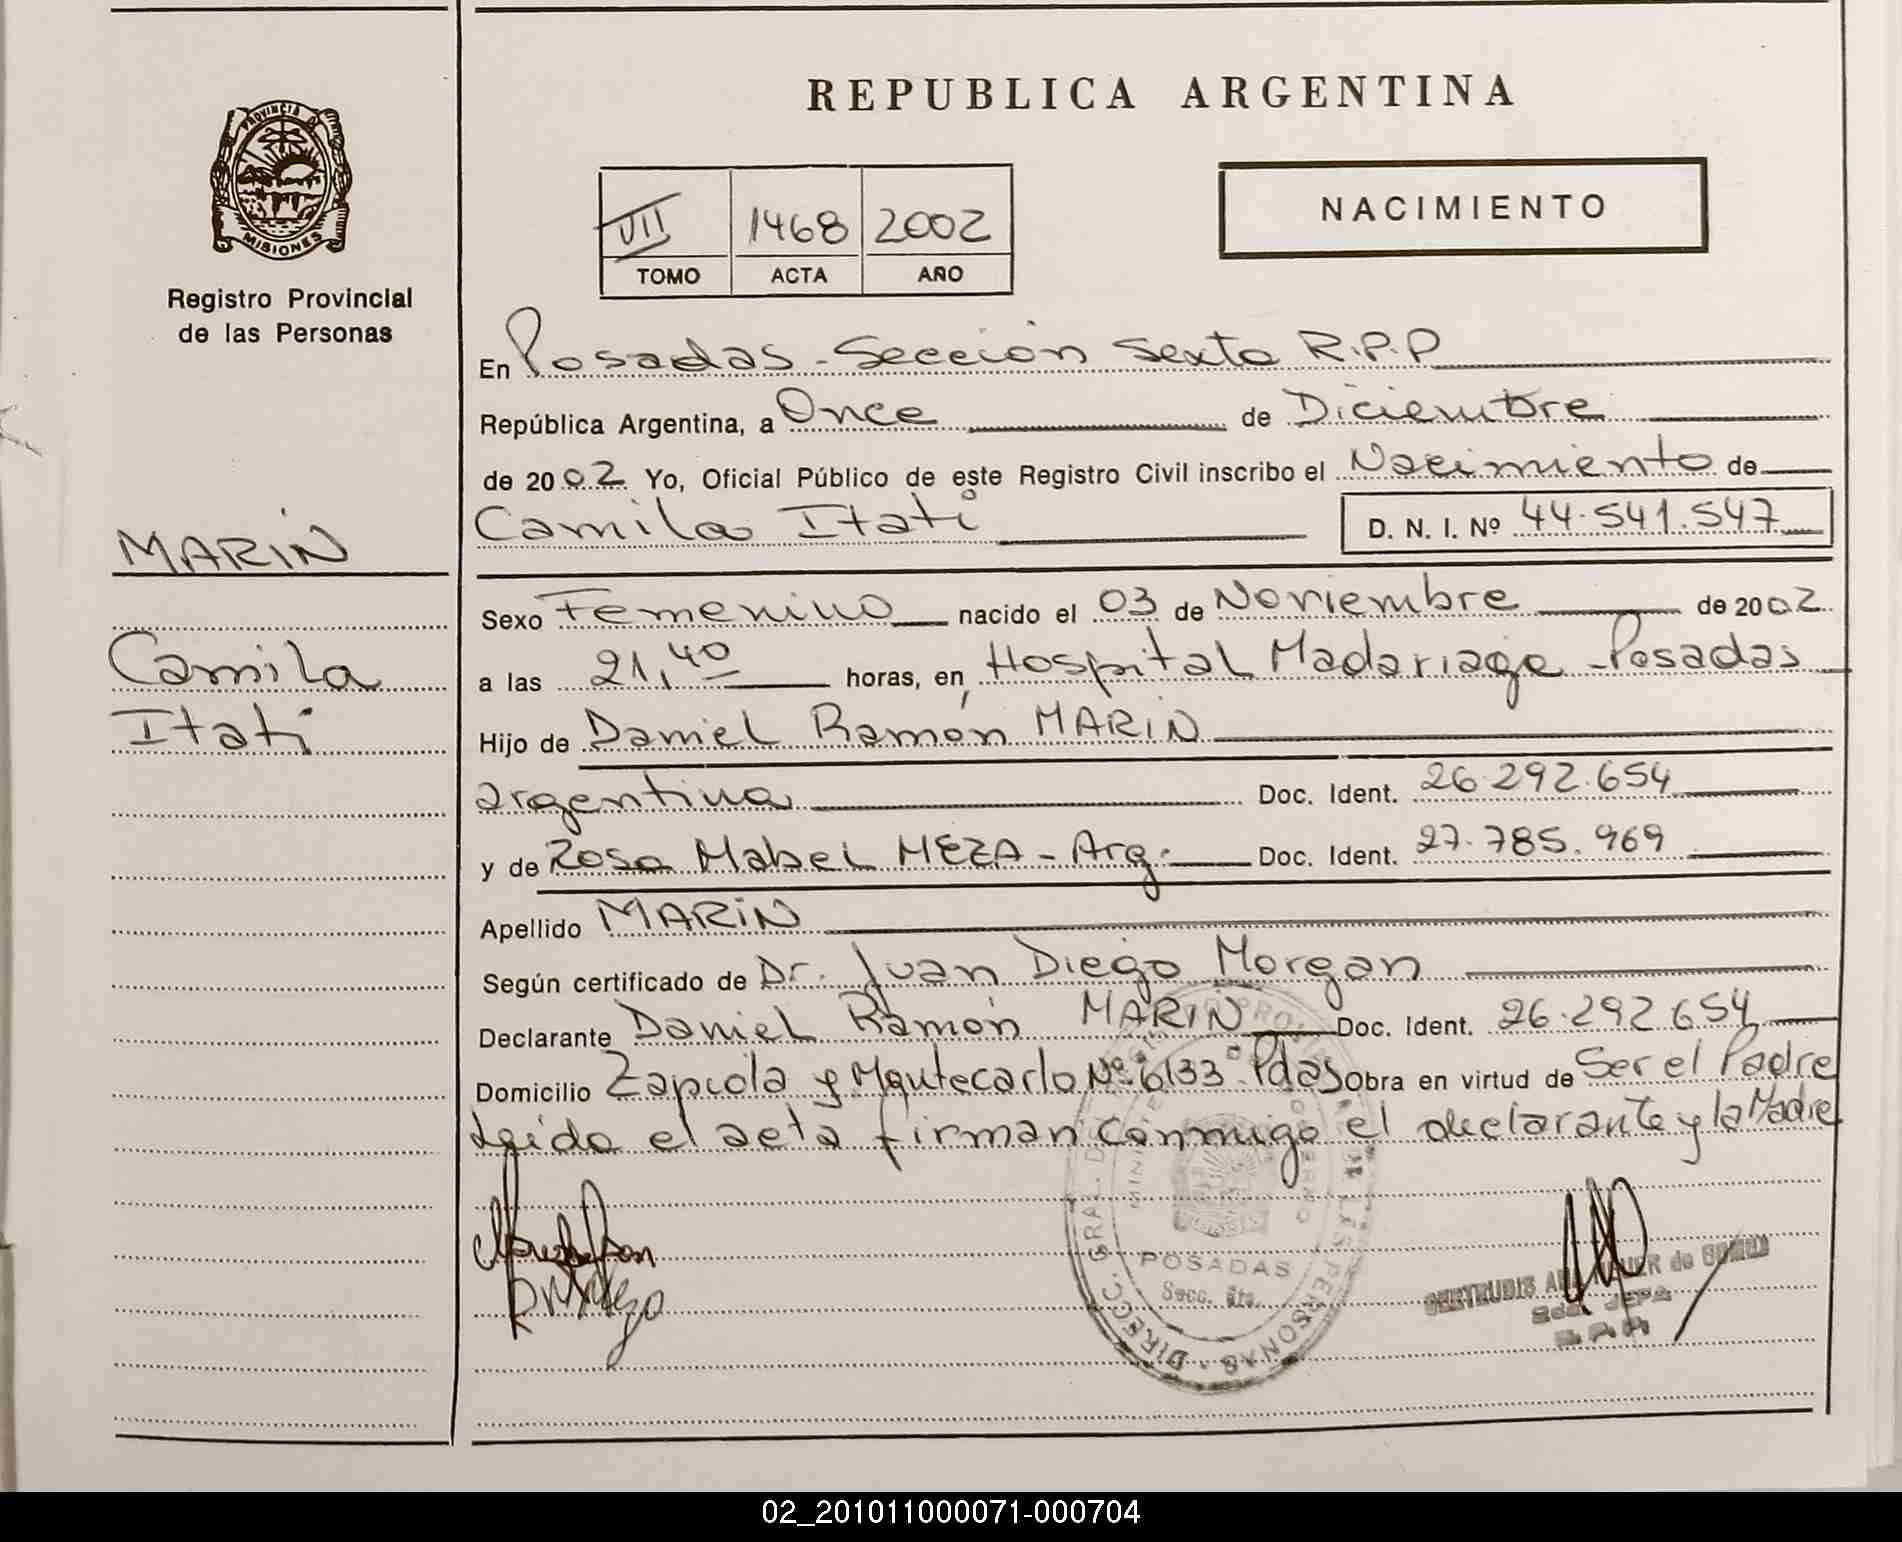 REPUBLICA ARGENTINA
PROVINCIA DE
MISIONES
Registro Provincial
de las Personas
VII 1468 2002
TOMO ACTA AÑO
NACIMIENTO
En Posadas - Sección Sexta R.P.P
República Argentina, a Once de Diciembre
de 2002 Yo, Oficial Público de este Registro Civil inscribo el Nacimiento de
Camila Itatí D. N. I. Nº 44.541.547
MARIN
Camila
Itatí
Sexo Femenino nacido el 03 de Noviembre de 2002
a las 21,40 horas, en Hospital Madariaga - Posadas
Hijo de Daniel Ramón MARIN
argentina Doc. Ident. 26.292.654
y de Rosa Mabel MEZA - Arg. Doc. Ident. 27.785.969
Apellido MARIN
Según certificado de Dr. Juan Diego Morgan
Declarante Daniel Ramón MARIN Doc. Ident. 26.292.654
Domicilio Zapiola y Montecarlo Nº 6133 Pdas Obra en virtud de Ser el Padre
Leída el acta firman conmigo el declarante y la Madre
DIRECC. GRAL. DEL PERSONAS
POSADAS
Secc. 6ta.
GERTRUDIS de
02_201011000071-000704